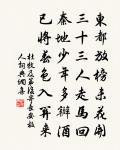 東都放榜未花開
三十三人走馬回
秦地少年多釀酒
已將春色入關來
杜牧及第後寄長安故
人詞典網集